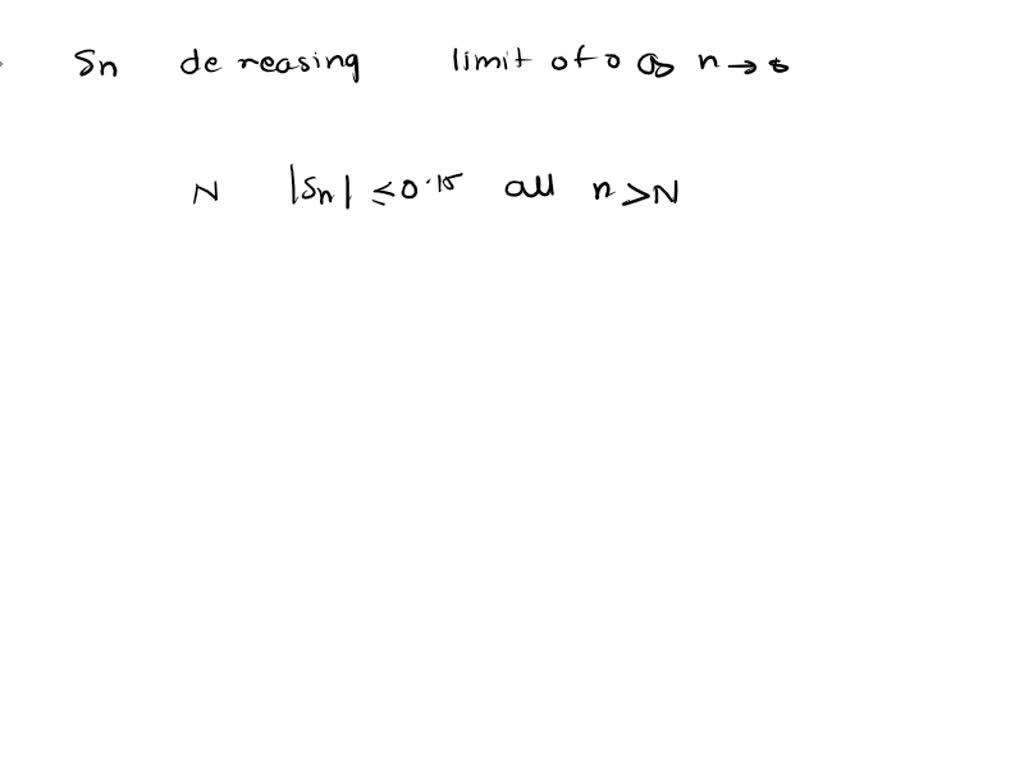 Sn de reasing limit of 0 as n →
N |Sn| ≤ 0.15 all n > N